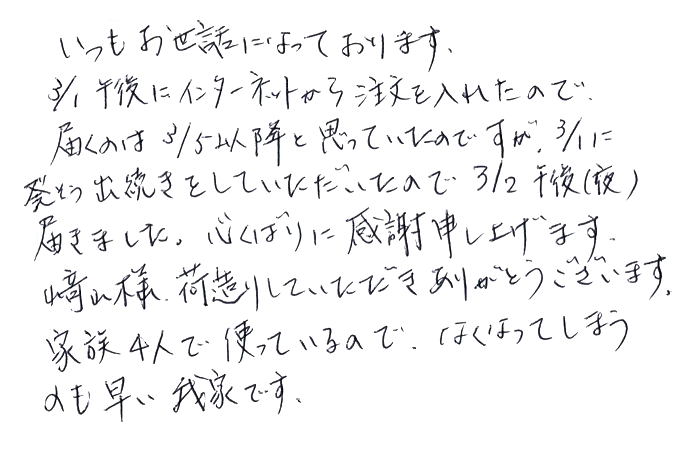 いつもお世話になっております.
3/1 午後にインターネットから注文を入れたので.
届くのは 3/5以降と思っていたのですが. 3/1に
発そう出続きをしていただいたので 3/2 午後(夜)
届きました。心くばりに感謝申し上げます.
﨑山様. 荷造りしていただきありがとうございます.
家族4人で使っているので. なくなってしまう
のも早い我家です.